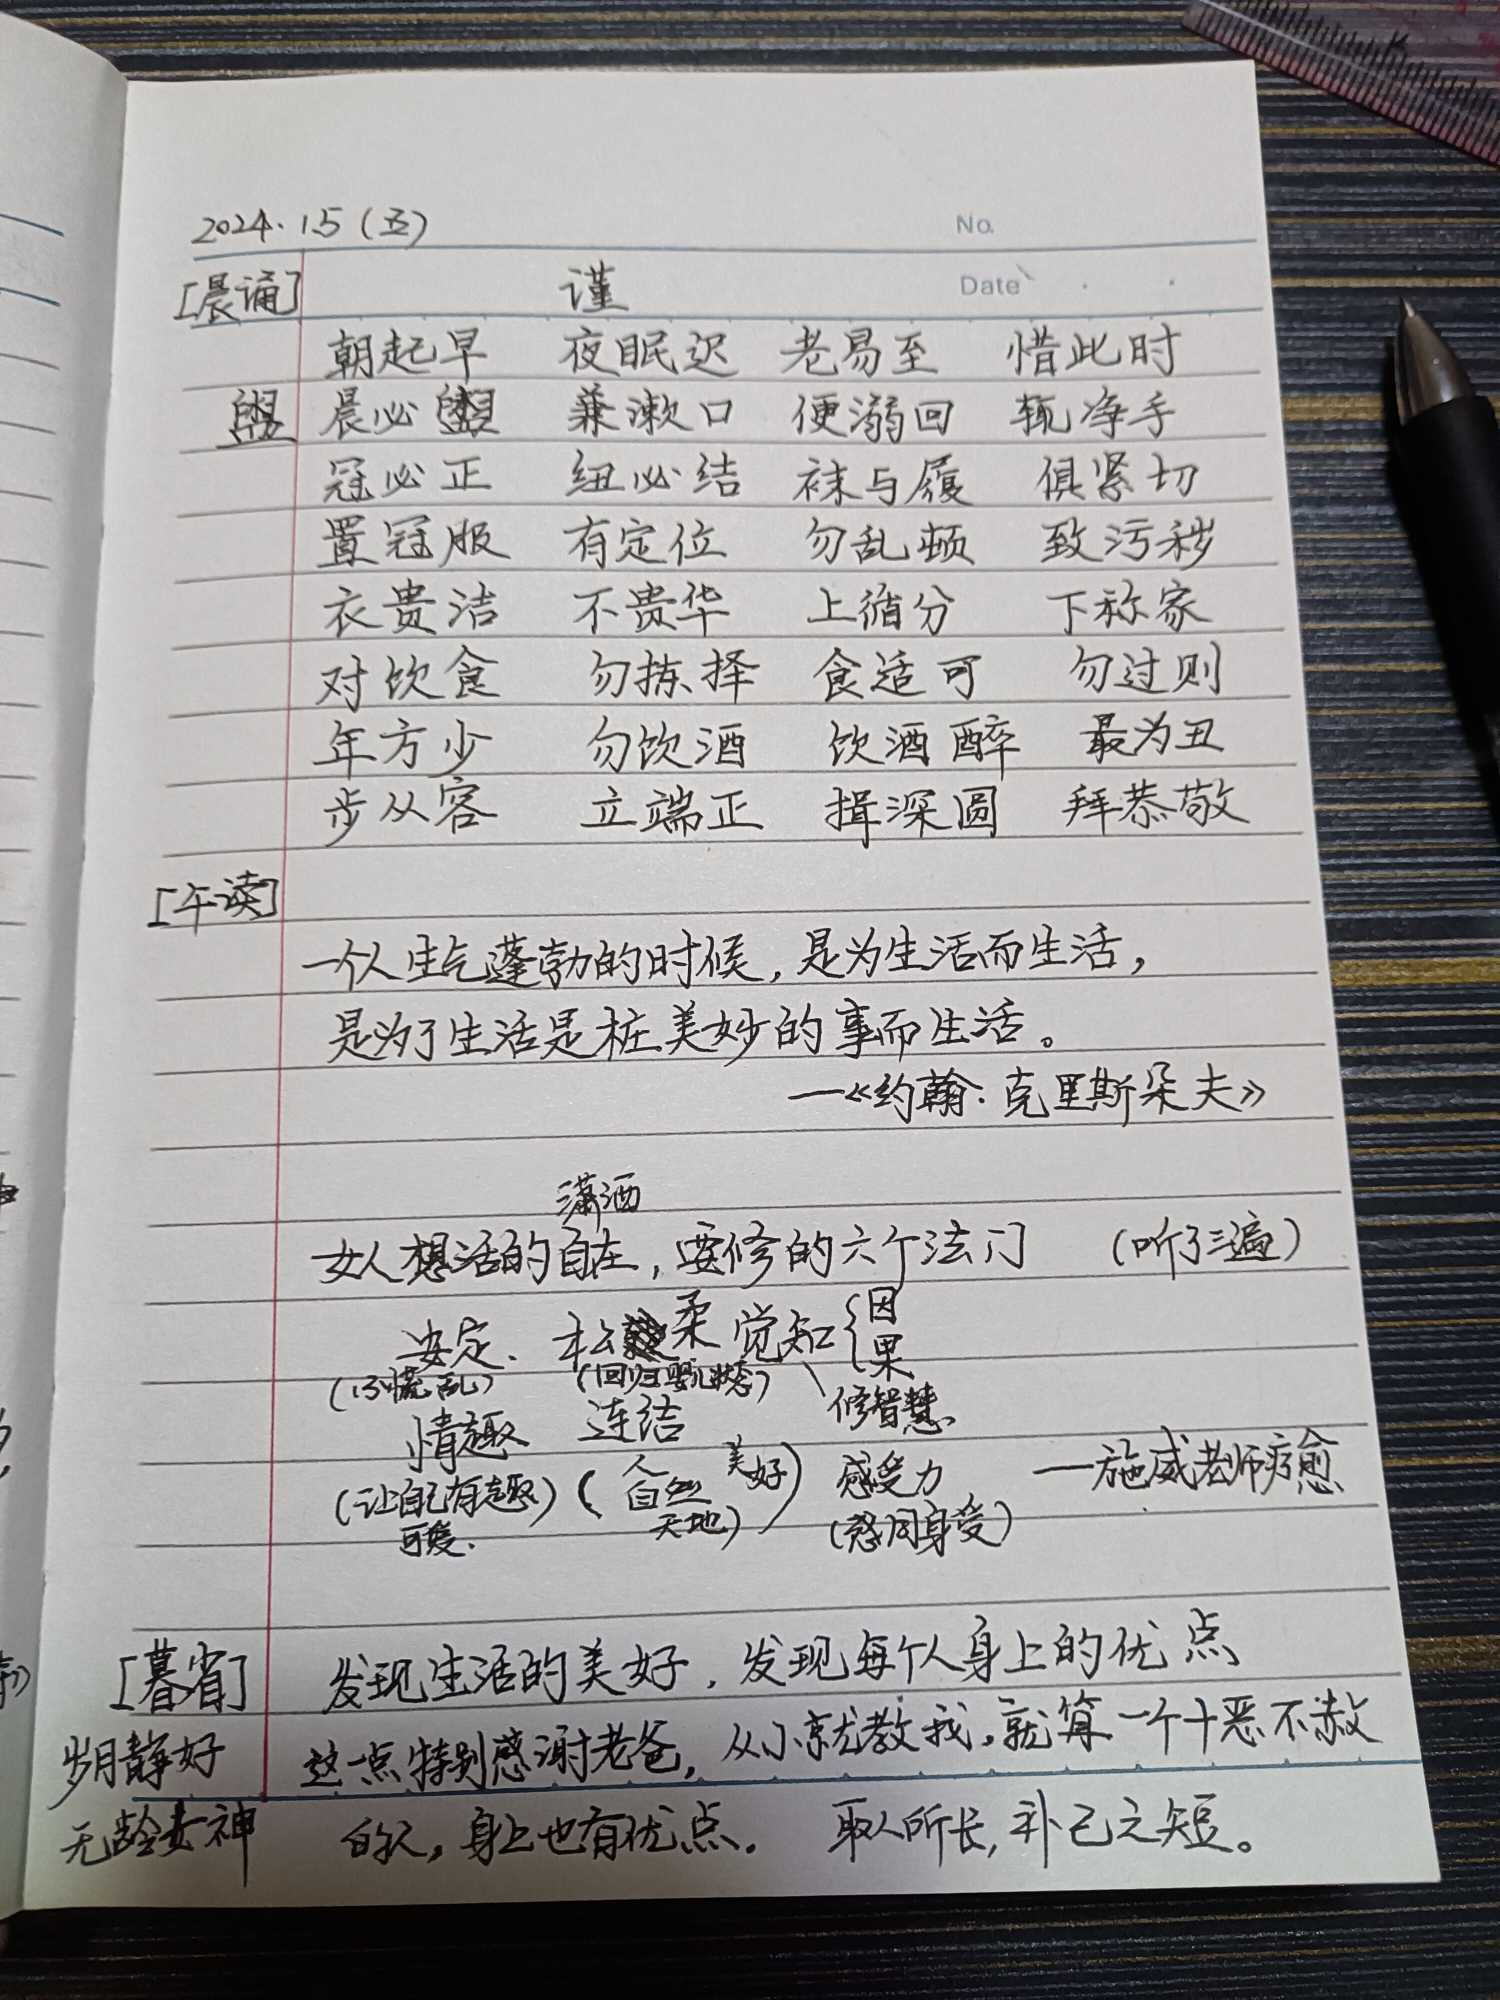 2024.1.5（五）
No.
[晨诵] 谨 Date
朝起早 夜眠迟 老易至 惜此时
盥 晨必盥 兼漱口 便溺回 辄净手
冠必正 纽必结 袜与履 俱紧切
置冠服 有定位 勿乱顿 致污秽
衣贵洁 不贵华 上循分 下称家
对饮食 勿拣择 食适可 勿过则
年方少 勿饮酒 饮酒醉 最为丑
步从容 立端正 揖深圆 拜恭敬
[午读]
一个人生气蓬勃的时候，是为生活而生活，
是为了生活是桩美妙的事而生活。
—《约翰·克里斯朵夫》
潇洒
女人想活的自在，要修的六个法门 （听了三遍）
安定、松柔 觉知{因果
（不慌乱） （回归婴儿状态） 修智慧
情趣 连结
（让自己有趣可爱） （人 自然 天地 美好） 感受力 —施威老师疗愈
（感同身受）
[暮省] 发现生活的美好，发现每个人身上的优点
岁月静好 这一点特别感谢老爸，从小就教我，就算一个十恶不赦
无龄女神 的人，身上也有优点。 取人所长，补己之短。